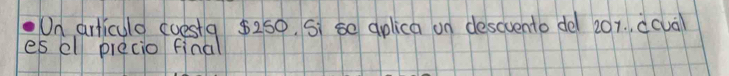 •Un artículo cuesta $250. Si se aplica un descuento del 20%., ¿cuál
es el precio final